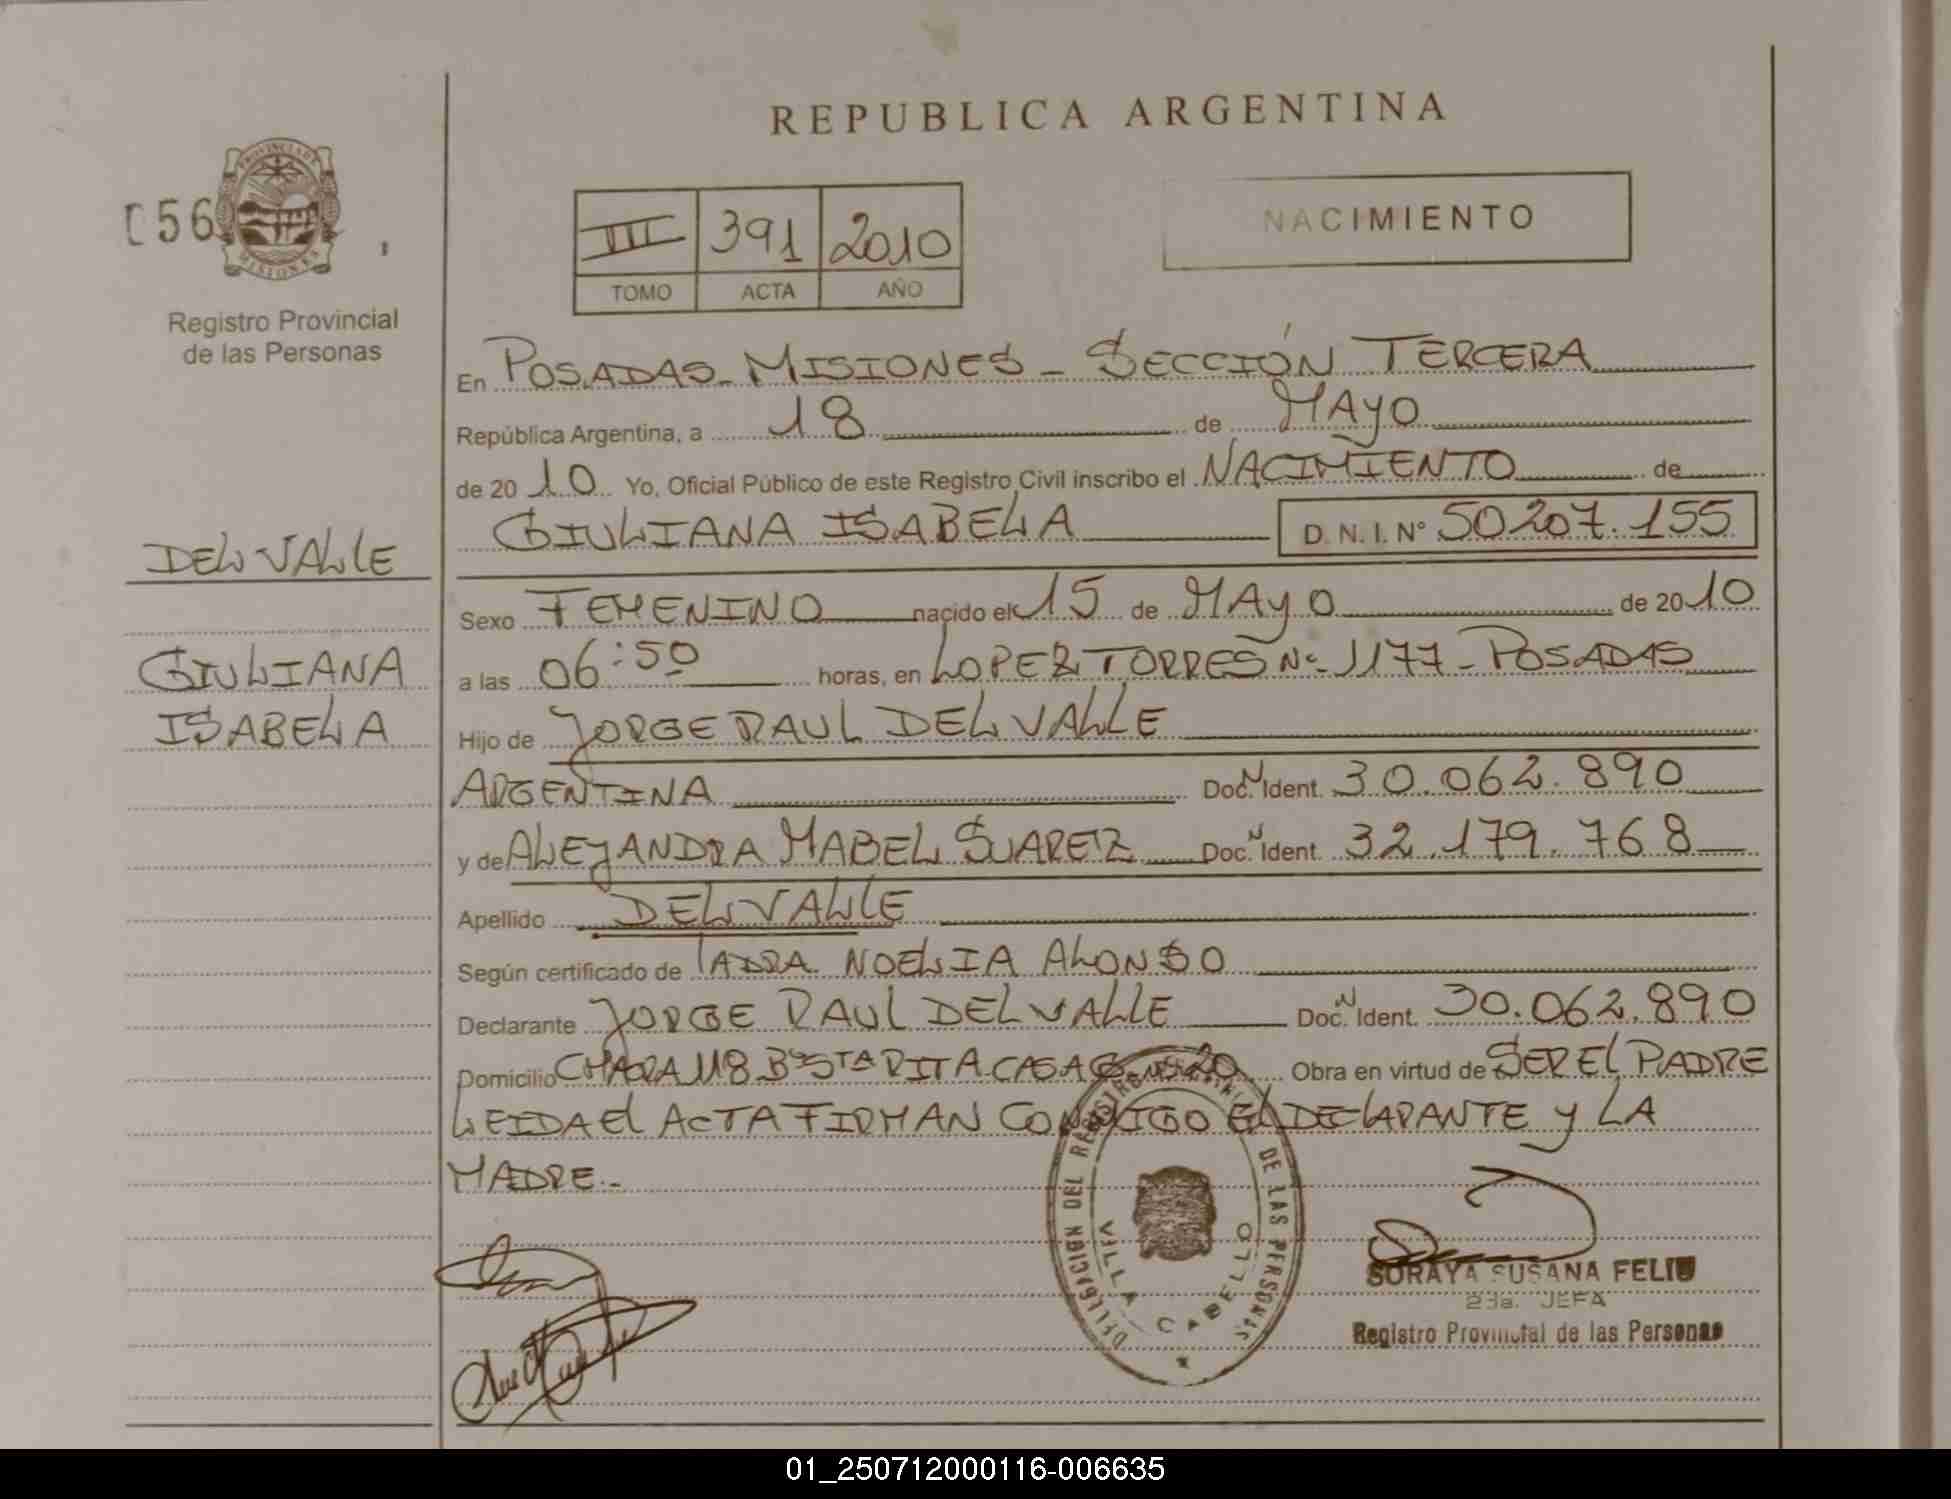 REPUBLICA ARGENTINA
056
PROVINCIA DE
MISIONES
Registro Provincial
de las Personas
III 391 2010
TOMO ACTA AÑO
NACIMIENTO
En POSADAS - MISIONES - SECCIÓN TERCERA
República Argentina, a 18 de MAYO
de 2010 Yo, Oficial Público de este Registro Civil inscribo el NACIMIENTO de
GIULIANA ISABELA D. N. I. N° 50207.155
DEL VALLE
GIULIANA
ISABELA
Sexo FEMENINO nacido el 15 de MAYO de 2010
a las 06:50 horas, en LOPEZ TORRES N° 1177 - POSADAS
Hijo de JORGE RAUL DEL VALLE
ARGENTINA Doc. N Ident. 30.062.890
y de ALEJANDRA MABEL SUAREZ Doc. N Ident. 32.179.768
Apellido DEL VALLE
Según certificado de NOELIA ALONSO
Declarante JORGE RAUL DEL VALLE Doc. N Ident. 30.062.890
Domicilio CHACRA 118 B° STA RITA CASA 20 Obra en virtud de SER EL PADRE
LEIDA El ACTA FIRMAN CONMIGO EL DECLARANTE y LA
MADRE.-
DELEGACION DEL REGISTRO DE LAS PERSONAS
VILLA CABELLO
SORAYA SUSANA FELIU
2da. JEFA
Registro Provincial de las Personas
01_250712000116-006635